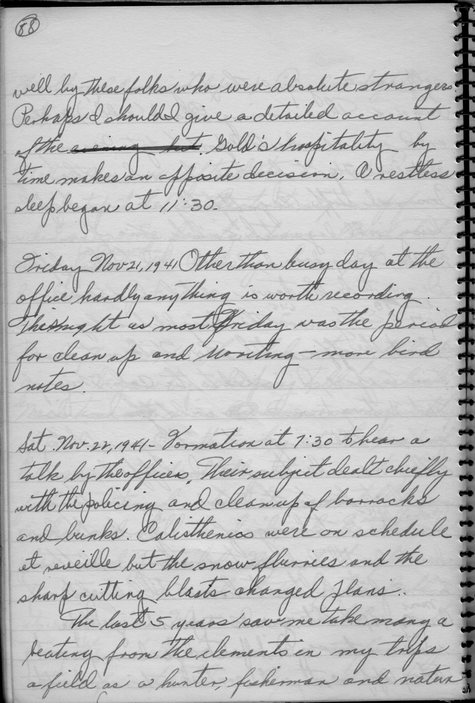 88
well by these folks who were absolute strangers
Perhaps I should give a detailed account
of the evening but. Gold's hospitality by
time makes an opposite decision. A restless
sleep began at 11:30.
Friday Nov 21, 1941 Other than busy day at the
office hardly anything is worth recording.
The night as most Friday was the period
for clean up and writing - more bird
notes.
Sat. Nov. 22, 1941 - Formation at 7:30 to hear a
talk by the officers. Their subject dealt chiefly
with the policing and cleanup of barracks
and bunks. Calisthenics were on schedule
at reveille but the snow flurries and the
sharp cutting blasts changed plans.
The last 5 years saw me take many a
beating from the elements in my trips
afield as a hunter, fisherman and natur